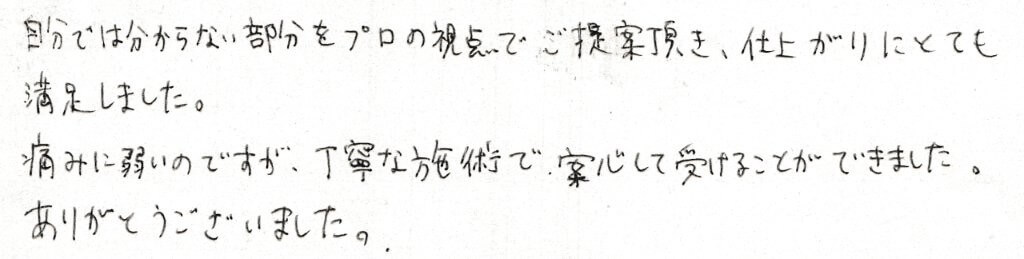 自分では分からない部分をプロの視点でご提案頂き、仕上がりにとても
満足しました。
痛みに弱いのですが、丁寧な施術で、案心して受けることができました。
ありがとうございました。